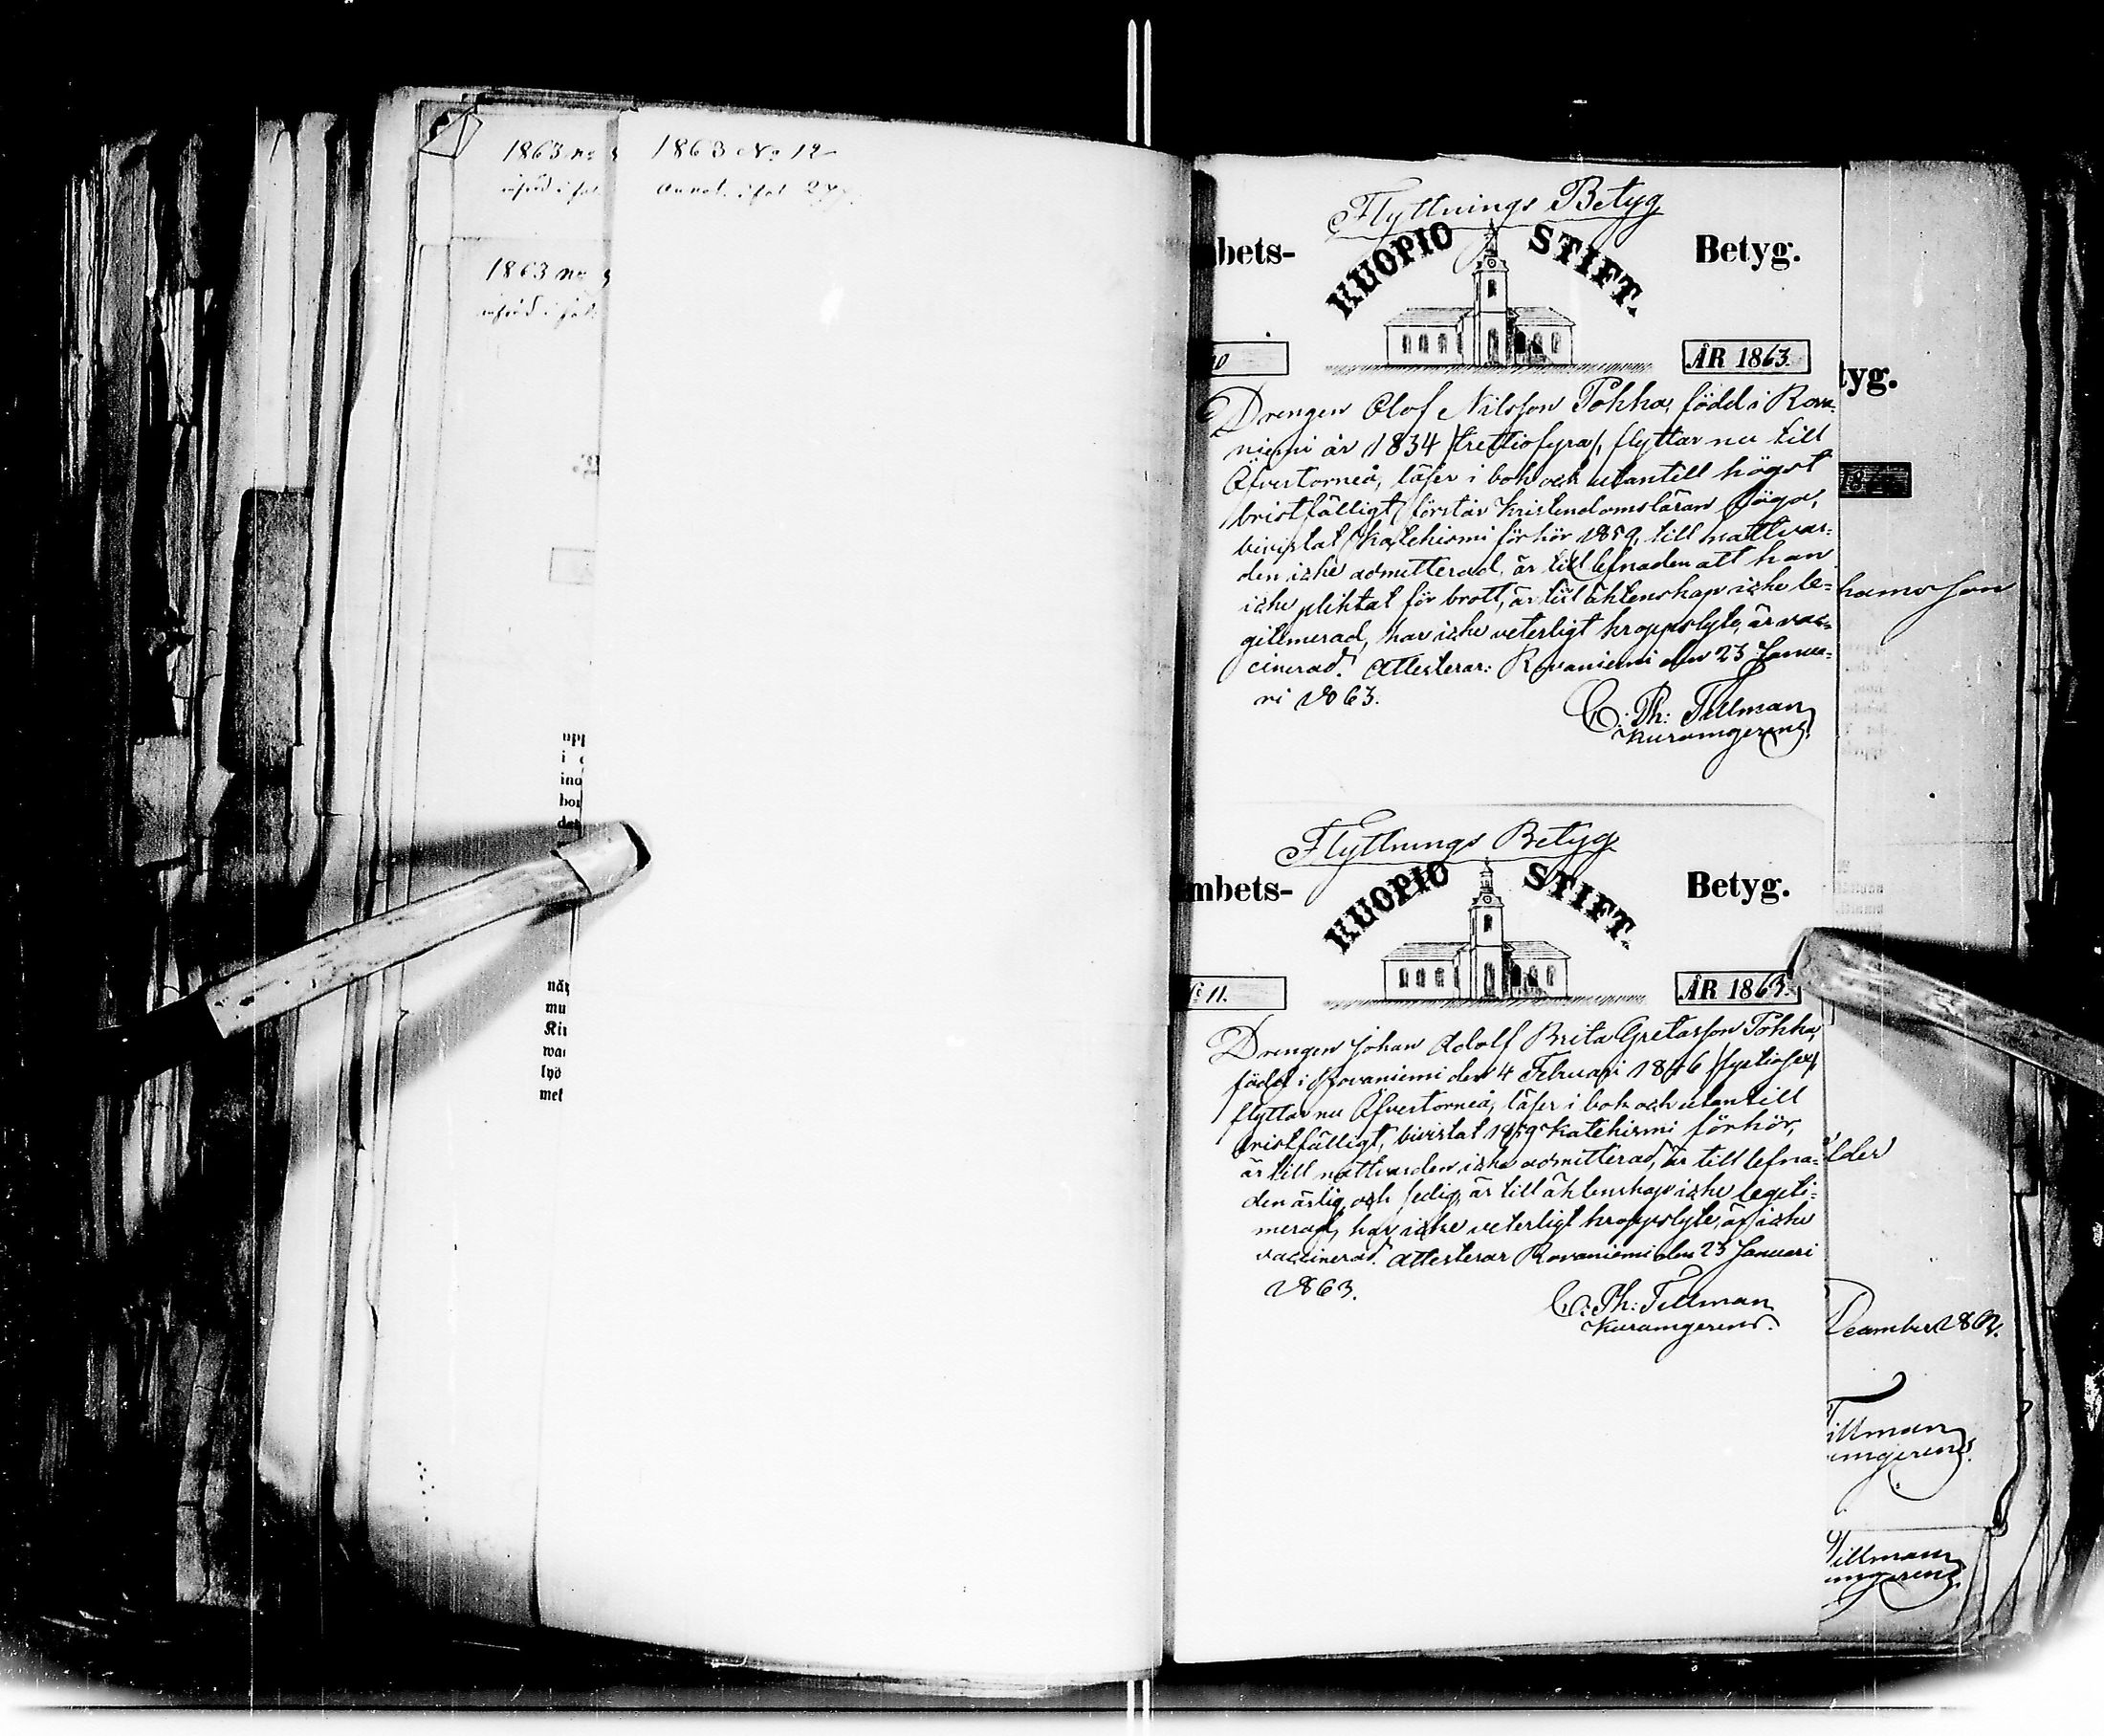 1863 No 12
Annot. i fol 277.
1863 no
införd i fol.
1863 no
införd i fol.
upp
i
ino
bor
det
när
mu
Kir
wai
lyö
mel
Flyttnings Betyg
mbets-
KUOPIO STIFT.
Betyg.
10
ÅR 1863.
Drengen Olof Nilsson Pohha, född i Rova-
niemi år 1834 /trettiofyra/, flyttar nu till
Öfvertorneå, läser i bok och utantill högst
bristfälligt, förstår kristendomsläran föga,
bivistat katehismi förhör 1859, till nattvar-
den icke admitterad, är till lefnaden att han
icke plihtat för brott, är till ähtenskap icke le-
gitimerad, har icke veterligt kroppslyte, är vac-
cinerad. Attesterar: Rovaniemi den 23 Janua-
ri 1863.
C. Ph: Tillman
Kuramgerens.
Flyttnings Betyg
mbets-
KUOPIO STIFT.
Betyg.
No 11.
ÅR 1863.
Drengen Johan Adolf Brita Gretasson Pohha,
född i Rovaniemi den 4 Februari 1846 /fyrtiosex/,
flyttar nu Öfvertorneå, läser i bok och utantill
bristfälligt, bivistat 1859 katehismi förhör,
är till nattvarden icke admitterad, är till lefna-
den ärlig och sedig, är till ähtenskap icke legiti-
merad, har icke veterligt kroppslyte, är icke
vaccinerad. Attesterar Rovaniemi den 23 Januari
1863.
C. Ph: Tillman
Kuramgerens.
tyg.
18
hansson
ålder
December 1862.
Tillman
amgerens.
Tillman
amgerens.